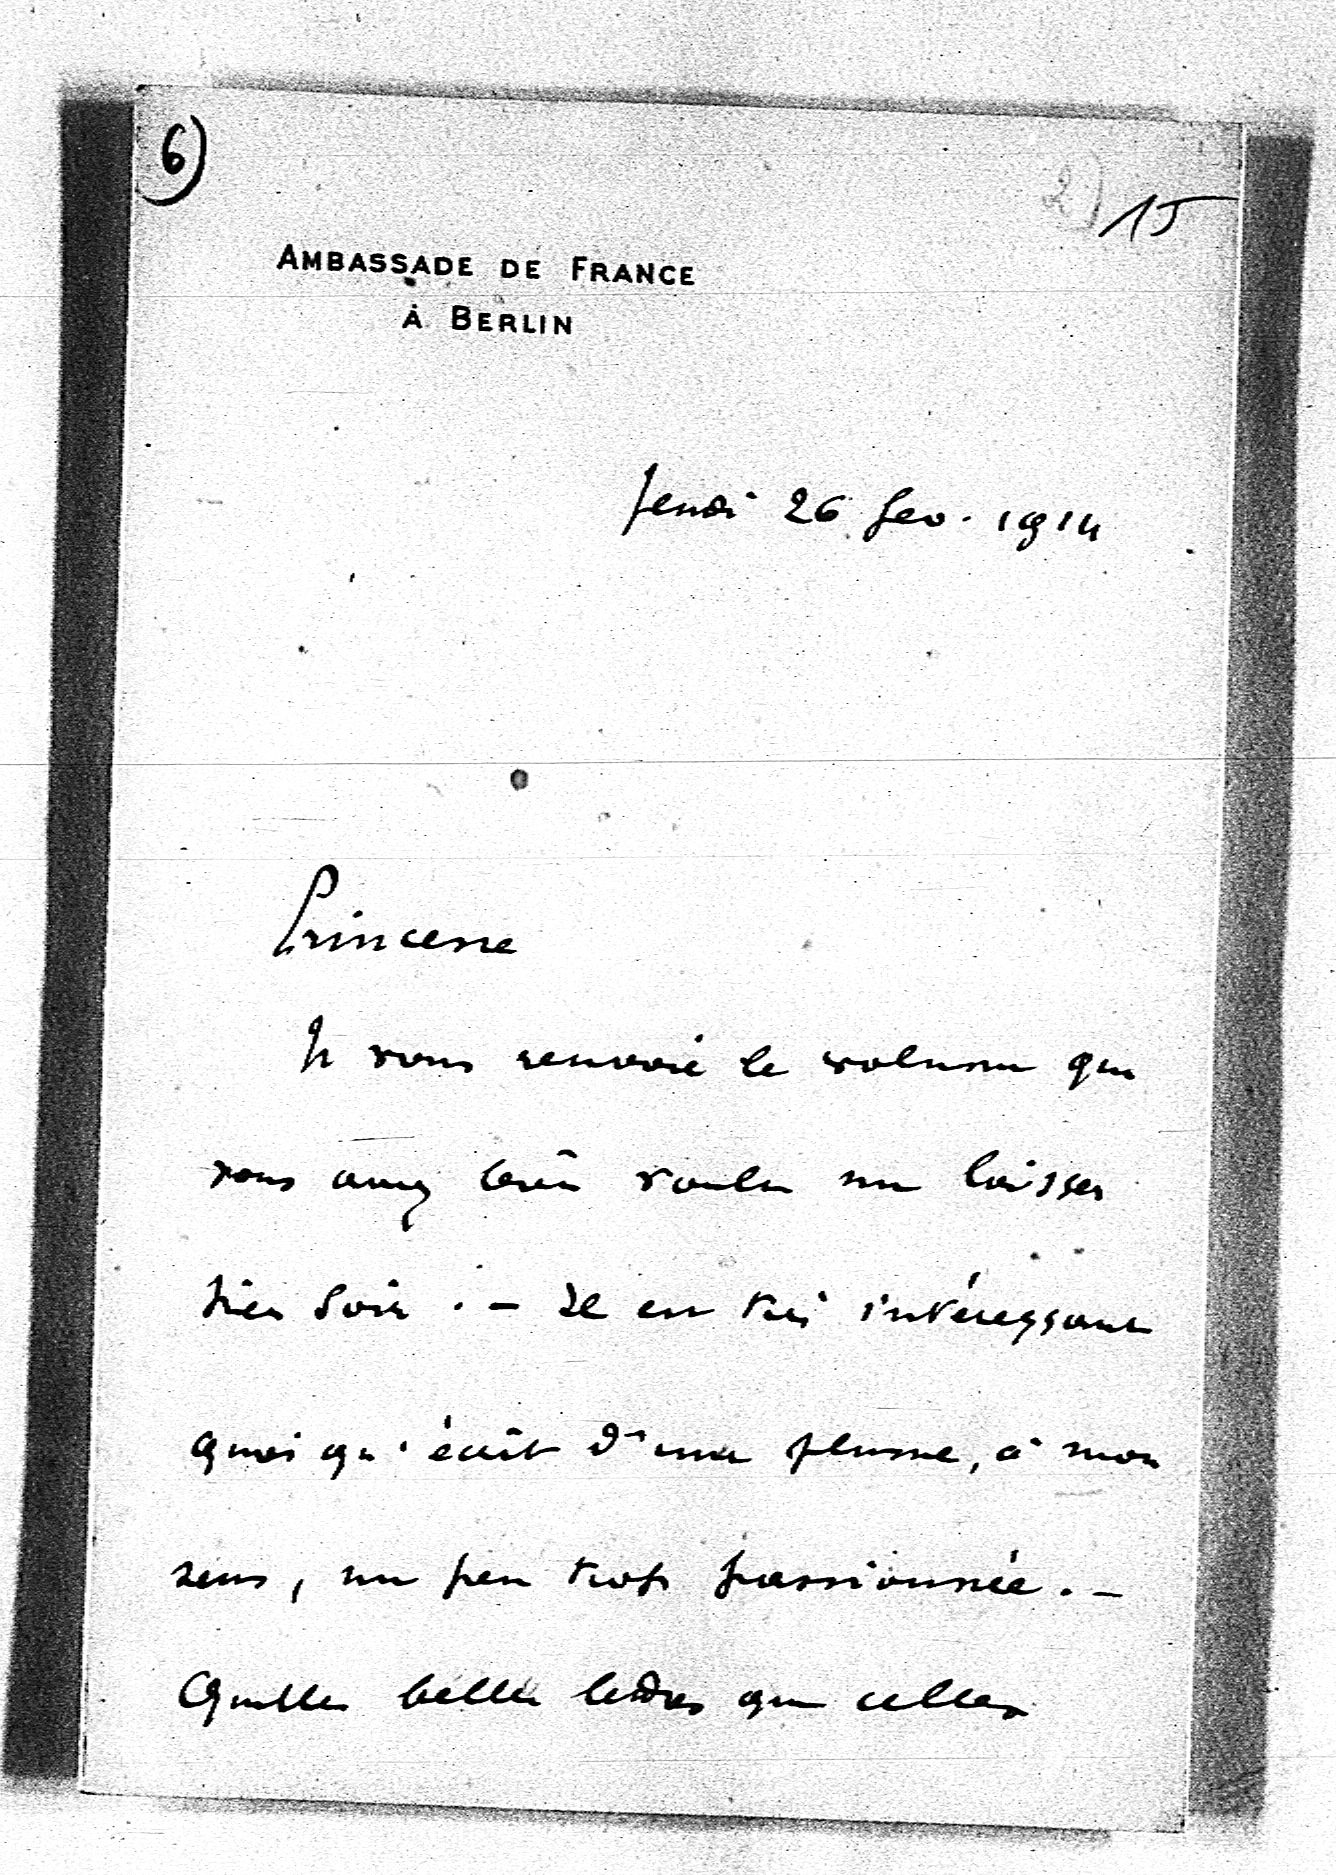 6)
2) 15
AMBASSADE DE FRANCE
À BERLIN
Jeudi 26 fev. 1914
Princesse
Je vous renvoie le volume que
vous avez bien voulu me laisser
hier soir. – Il est très intéressant
quoiqu'écrit d'une plume, à mon
sens, un peu trop passionnée. –
Quelles belles lettres que celles